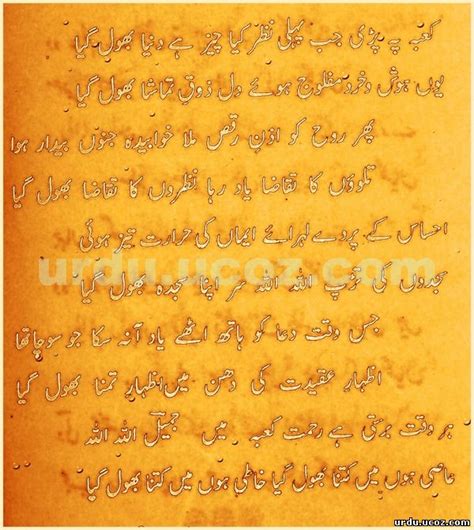 کعبہ پہ پڑی جب پہلی نظر کیا چیز ہے دنیا بھول گیا
یوں ہوش و خرد مفلوج ہوئے دل ذوقِ تماشا بھول گیا
پھر روح کو اذنِ رقص ملا خوابیدہ جنوں بیدار ہوا
تلوؤں کا تقاضا یاد رہا نظروں کا تقاضا بھول گیا
احساس کے پردے لہرائے ایماں کی حرارت تیز ہوئی
سجدوں کی تڑپ اللہ اللہ سر اپنا سجدہ بھول گیا
urdu.ucoz.com
جس وقت دعا کو ہاتھ اٹھے یاد آ نہ سکا جو سوچا تھا
اظہارِ عقیدت کی دھن میں اظہارِ تمنا بھول گیا
ہر وقت برستی ہے رحمت کعبہ میں جمیل اللہ اللہ
عاصی ہوں میں کتنا بھول گیا خاطی ہوں میں کتنا بھول گیا
urdu.ucoz.com